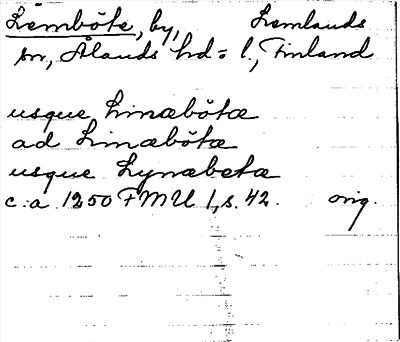 Lemböte, by, Lemlands
sn, Ålands hd = l., Finland
usque Linæbötæ
ad Linæbötæ
usque Lynæbetæ
c:a 1250 FMU I, s. 42. orig.